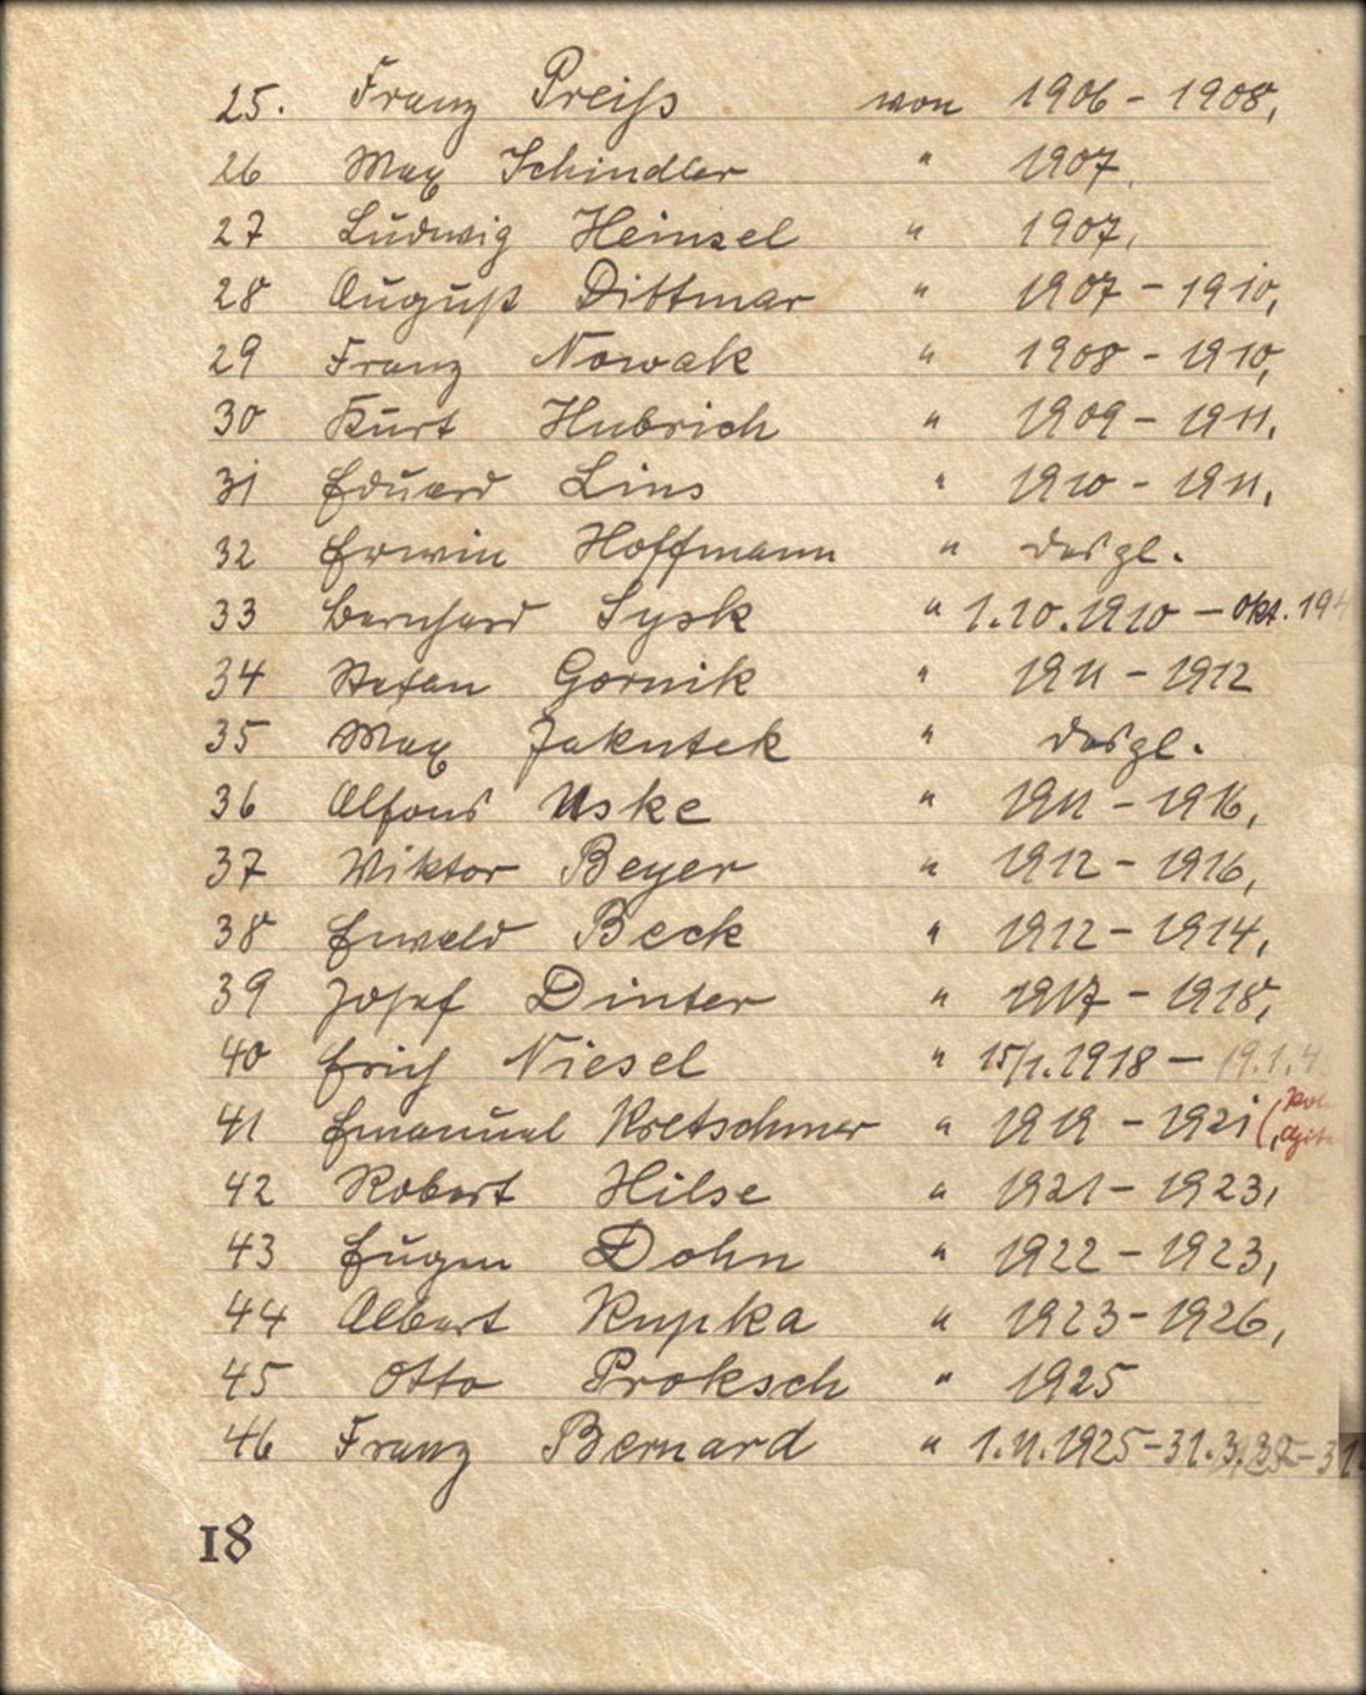 25. Franz Preiß von 1906 - 1908,
26 Max Schindler " 1907,
27 Ludwig Heinsel " 1907,
28 August Dittmar " 1907 - 1910,
29 Franz Nowak " 1908 - 1910,
30 Kurt Hubrich " 1909 - 1911,
31 Eduard Lins " 1910 - 1911,
32 Erwin Hoffmann " desgl.
33 Bernhard Sysk " 1.10.1910 - Okt. 19
34 Stefan Gornik " 1911 - 1912
35 Max Jakutek " desgl.
36 Alfons Uske " 1911 - 1916,
37 Wiktor Beyer " 1912 - 1916,
38 Ewald Beck " 1912 - 1914,
39 Josef Dinter " 1917 - 1918,
40 Erich Niesel " 15/1.1918 - 19.1.4
41 Emanuel Kretschmer " 1919 - 1921
42 Robert Hilse " 1921 - 1923,
43 Eugen Dohn " 1922 - 1923,
44 Albert Kupka " 1923 - 1926,
45 Otto Proksch " 1925
46 Franz Bernard " 1.11.1925 - 31.3.
18